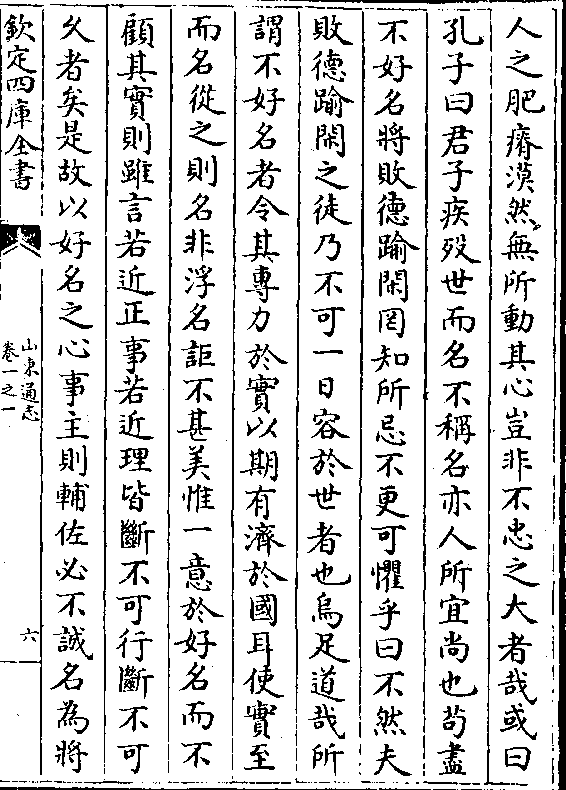 人之肥瘠漠然無所動其心豈非不忠之大者哉或曰
孔子曰君子疾歿世而名不稱名亦人所宜尚也茍盡
不好名將敗德踰閑罔知所忌不更可懼乎曰不然夫
敗德踰閑之徒乃不可一日容於世者也烏足道哉所
謂不好名者令其專力於實以期有濟於國耳使實至
而名從之則名非浮名詎不甚美惟一意於好名而不
顧其實則雖言若近正事若近理皆斷不可行斷不可
久者矣是故以好名之心事主則輔佐必不誠名為將
欽定四庫全書
山東通志
卷一之一
六